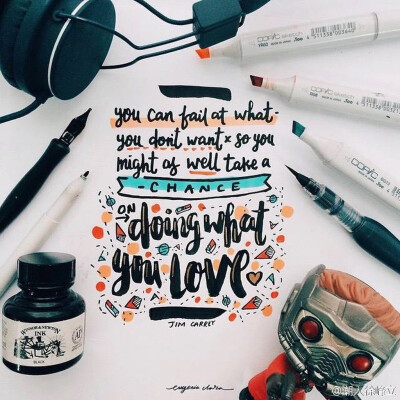 you can fail at what
you don't want so you
might as well take a
CHANCE
ON
doing what
you LOVE
JIM CARREY
COPIC
COPIC
COPIC
WINSOR & NEWTON
INK
BLACK